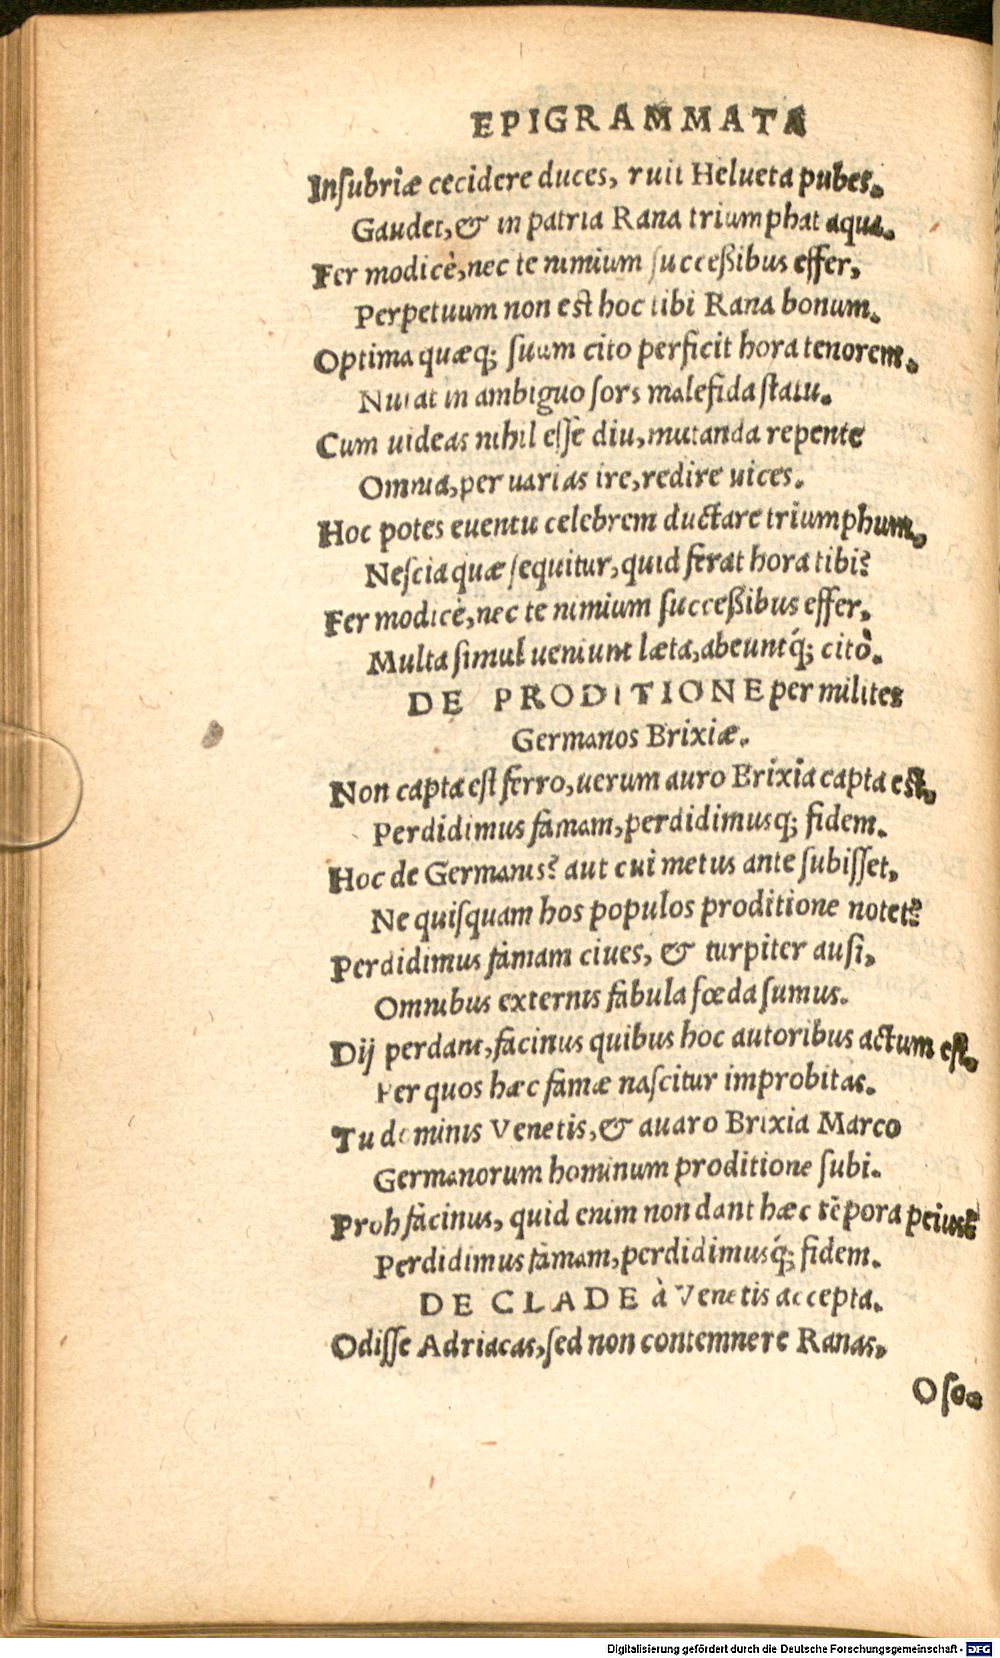 EPIGRAMMATA
Insubriæ cecidere duces, ruit Helueta pubes.
Gaudet, & in patria Rana triumphat aqua.
Fer modicè, nec te nimium succeßibus effer,
Perpetuum non est hoc tibi Rana bonum.
Optima quæq; suum cito perficit hora tenorem.
Nutat in ambiguo sors malefida statu.
Cum uideas nihil esse diu, mutanda repente
Omnia, per uarias ire, redire uices.
Hoc potes euentu celebrem ductare triumphum,
Nescia quæ sequitur, quid ferat hora tibi?
Fer modicè, nec te nimium succeßibus effer,
Multa simul ueniunt læta, abeuntq́; citò.
DE PRODITIONE per milites
Germanos Brixiæ.
Non capta est ferro, uerum auro Brixia capta est,
Perdidimus famam, perdidimusq; fidem.
Hoc de Germanis? aut cui metus ante subisset,
Ne quisquam hos populos proditione notet?
Perdidimus famam ciues, & turpiter ausi,
Omnibus externis fabula fœda sumus.
Dij perdant, facinus quibus hoc autoribus actum est,
Per quos hæc famæ nascitur improbitas.
Tu dominis Venetis, & auaro Brixia Marco
Germanorum hominum proditione subi.
Proh facinus, quid enim non dant hæc tēpora peius?
Perdidimus famam, perdidimusq́; fidem.
DE CLADE à Venetis accepta.
Odisse Adriacas, sed non contemnere Ranas,
Oso-
Digitalisierung gefördert durch die Deutsche Forschungsgemeinschaft - DFG